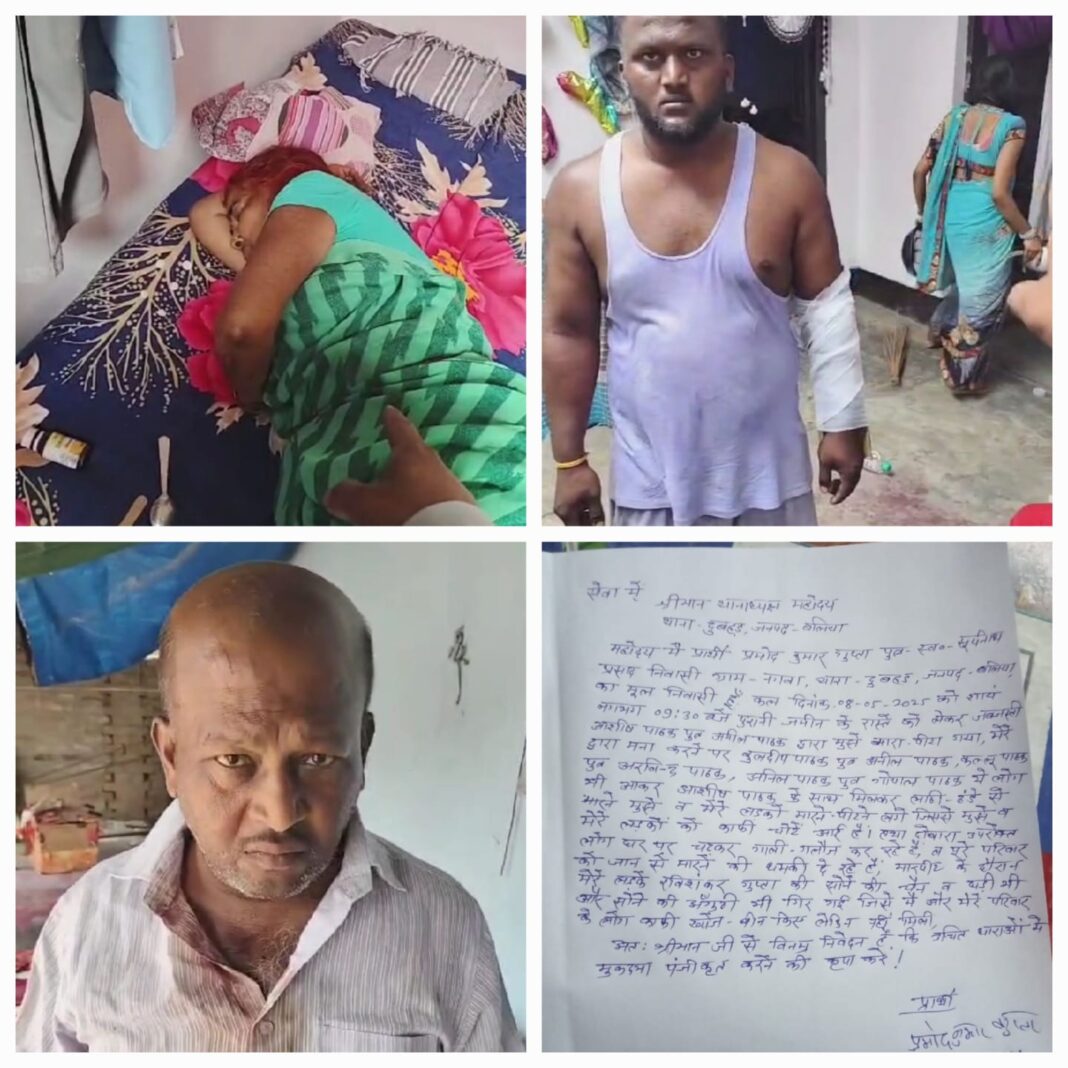 सेवा में
श्रीमान थानाध्यक्ष महोदय
थाना- दुबहड़, जनपद- बलिया
महोदय मैं प्रार्थी प्रमोद कुमार गुप्ता पुत्र- स्व०- सूर्यनाथ
प्रसाद निवासी ग्राम- नगवा, थाना- दुबहड़, जनपद- बलिया
का मूल निवासी हूँ कल दिनांक, 08-05-2025 को सायं
लगभग 09:30 बजे पुरानी जमीन के रास्ते को लेकर जबरजस्ती
आशीष पाठक पुत्र अनील पाठक द्वारा मुझे मारा-पीटा गया, मेरे
द्वारा मना करने पर कुलदीप पाठक पुत्र अनील पाठक, कल्लू पाठक
पुत्र अरविन्द पाठक, अनिल पाठक पुत्र गोपाल पाठक ये लोग
भी आकर आशीष पाठक के साथ मिलकर लाठी-डंडे से
मारने मुझे व मेरे लड़को मारने-पीटने लगे जिससे मुझे व
मेरे लड़को को काफी चोटें आई है। तथा दोबारा उपरोक्त
लोग घर पर चढ़कर गाली-गलौज कर रहे है, व पुरे परिवार
को जान से मारने की धमकी दे रहे है, मारपीट के दौरान
मेरे लड़के रविशंकर गुप्ता की सोने की चैन व घड़ी भी
और सोने की अँगुठी भी गिर गई जिसे मैं और मेरे परिवार
के लोग काफी खोज-बीन किए लेकिन नहीं मिली,
अतः श्रीमान जी से विनम्र निवेदन है कि उचित धाराओं मे
मुकदमा पंजीकृत करने की कृपा करे!
प्रार्थी
प्रमोद कुमार गुप्ता